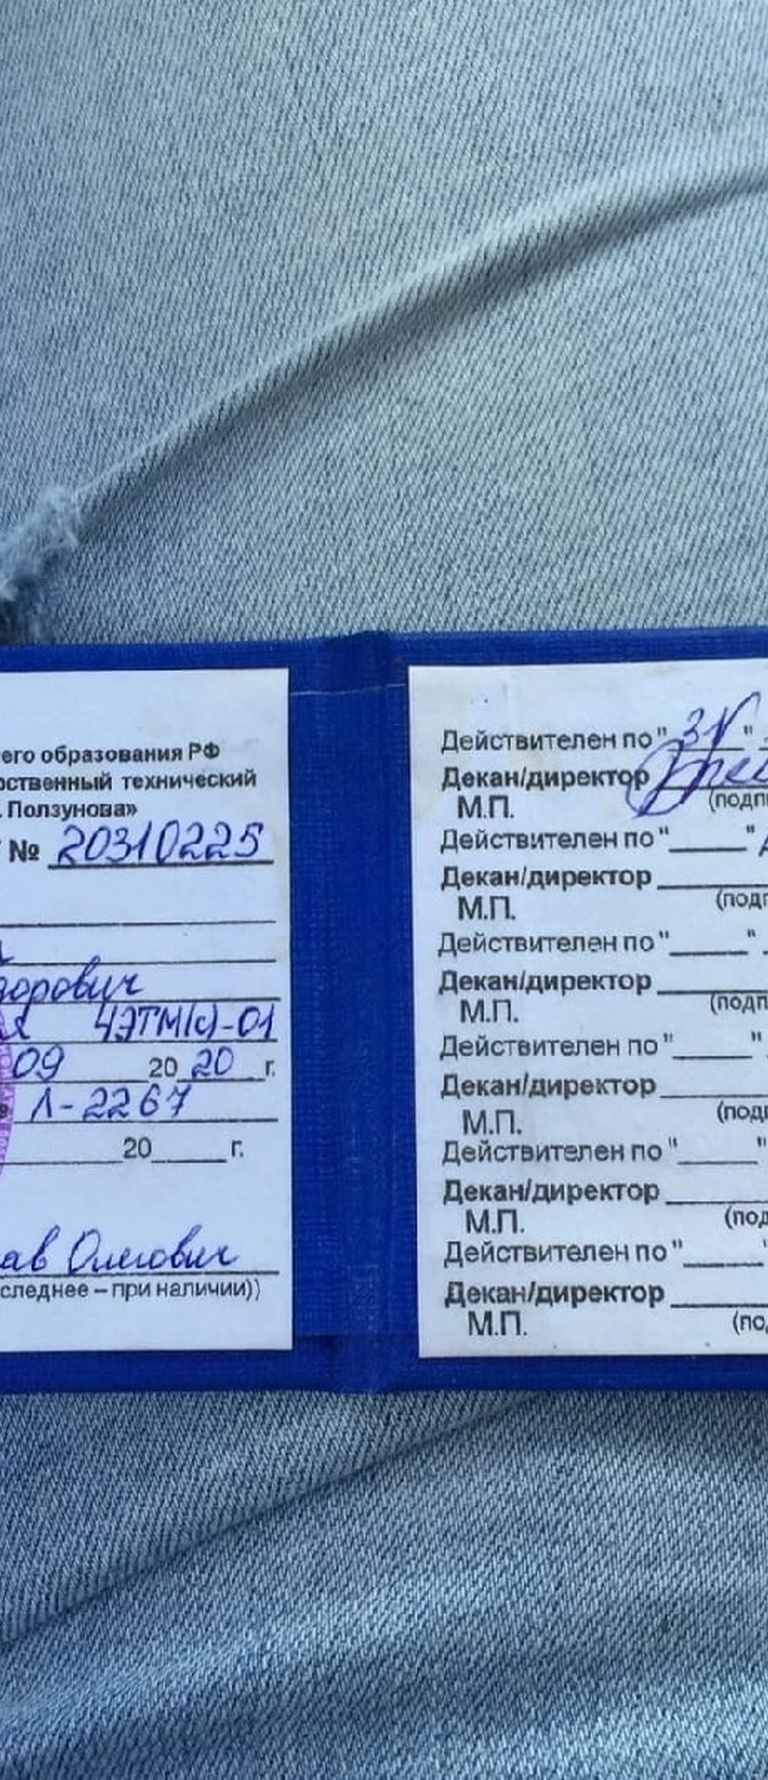 его образования РФ
рственный технический
. Ползунова»
№ 20310225
дорович
я 4ЭТМ(с)-01
09 20 20 г.
Л-2267
20 г.
ав Олегович
следнее – при наличии))
Действителен по " 31 "
Декан/директор
(подп
М.П.
Действителен по " "
Декан/директор
(подп
М.П.
Действителен по " "
Декан/директор
(подп
М.П.
Действителен по " "
Декан/директор
(подп
М.П.
Действителен по " "
Декан/директор
(под
М.П.
Действителен по " "
Декан/директор
(по
М.П.